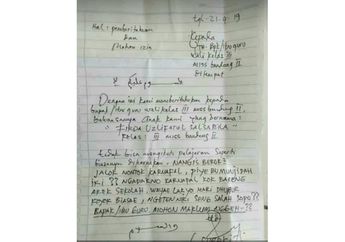 tgl-21-9-19
Hal : pemberitahuan
dan
Mohon izin
Kepada
Yth. Bpk/ibu guru
wali kelas III
MISS bandung II
Ditempat
Dengan ini kami memberitahukan kepada
bapak/ibu guru wali kelas III miss bandung II
bahwasannya anak kami yang bernama :
" FIKDA ULULFATUL SALSABILA "
Kelas III miss bandung II
tidak bisa mengikuti pelajaran seperti
biasanya dikarenakan : NANGIS BEBOT
JALOK NONTOK KARNAFAL, PIYE BU MUMUSIPAH
IKI ?? NGADAKNO KARNAFAL KOK BARENG
AREK SEKOLAH. WAYAH
KOYOK BIASAE, NGETEN NIKI SING SALAH SOPO ??
BAPAK/IBU GURU MOHON MAKLUM NGGEH - ??